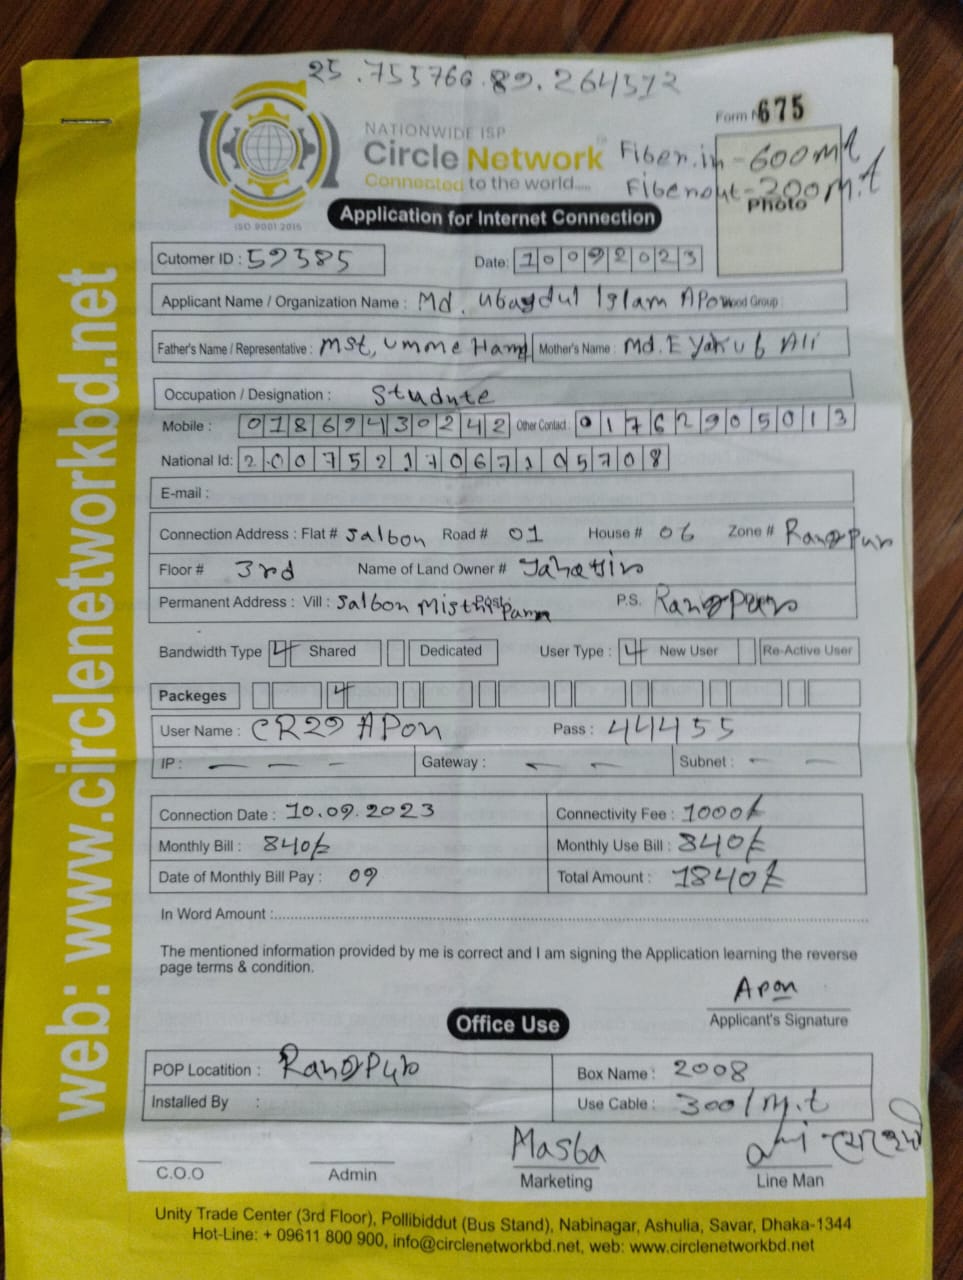 25.755766.89.264572
Form N 675
NATIONWIDE ISP
Circle Network
Connected to the world.....
ISO 9001:2015
Fiber.in - 600 m.t
Fiberout - 200 m.t
Photo
Application for Internet Connection
Cutomer ID : 59385
Date: 10092023
Applicant Name / Organization Name : Md. Ubaydul Islam Apon Blood Group :
Father's Name / Representative : Mst, Umme Hani Mother's Name : Md. Eyakub Ali
Occupation / Designation : Studnte
Mobile : 01869430242 Other Contact : 01762905013
National Id: 20075217067105708
E-mail :
Connection Address : Flat # Salbon Road # 01 House # 06 Zone # Rangpur
Floor # 3rd Name of Land Owner #
Permanent Address : Vill : Salbon Mistri Para Post: P.S. Rangpur
Bandwidth Type Shared Dedicated User Type : New User Re-Active User
Packeges
User Name : CR29 APon Pass : 44455
IP : — — - Gateway : — — Subnet : — —
Connection Date : 10.09.2023 Connectivity Fee : 1000/
Monthly Bill : 840/ Monthly Use Bill : 840/
Date of Monthly Bill Pay : 09 Total Amount : 1840/
In Word Amount :
The mentioned information provided by me is correct and I am signing the Application learning the reverse
page terms & condition.
Apon
Applicant's Signature
Office Use
POP Locatition : Rangpur Box Name : 2008
Installed By : Use Cable : 300/m.t
Masba
C.O.O Admin Marketing Line Man
Unity Trade Center (3rd Floor), Pollibiddut (Bus Stand), Nabinagar, Ashulia, Savar, Dhaka-1344
Hot-Line: + 09611 800 900, info@circlenetworkbd.net, web: www.circlenetworkbd.net
web: www.circlenetworkbd.net